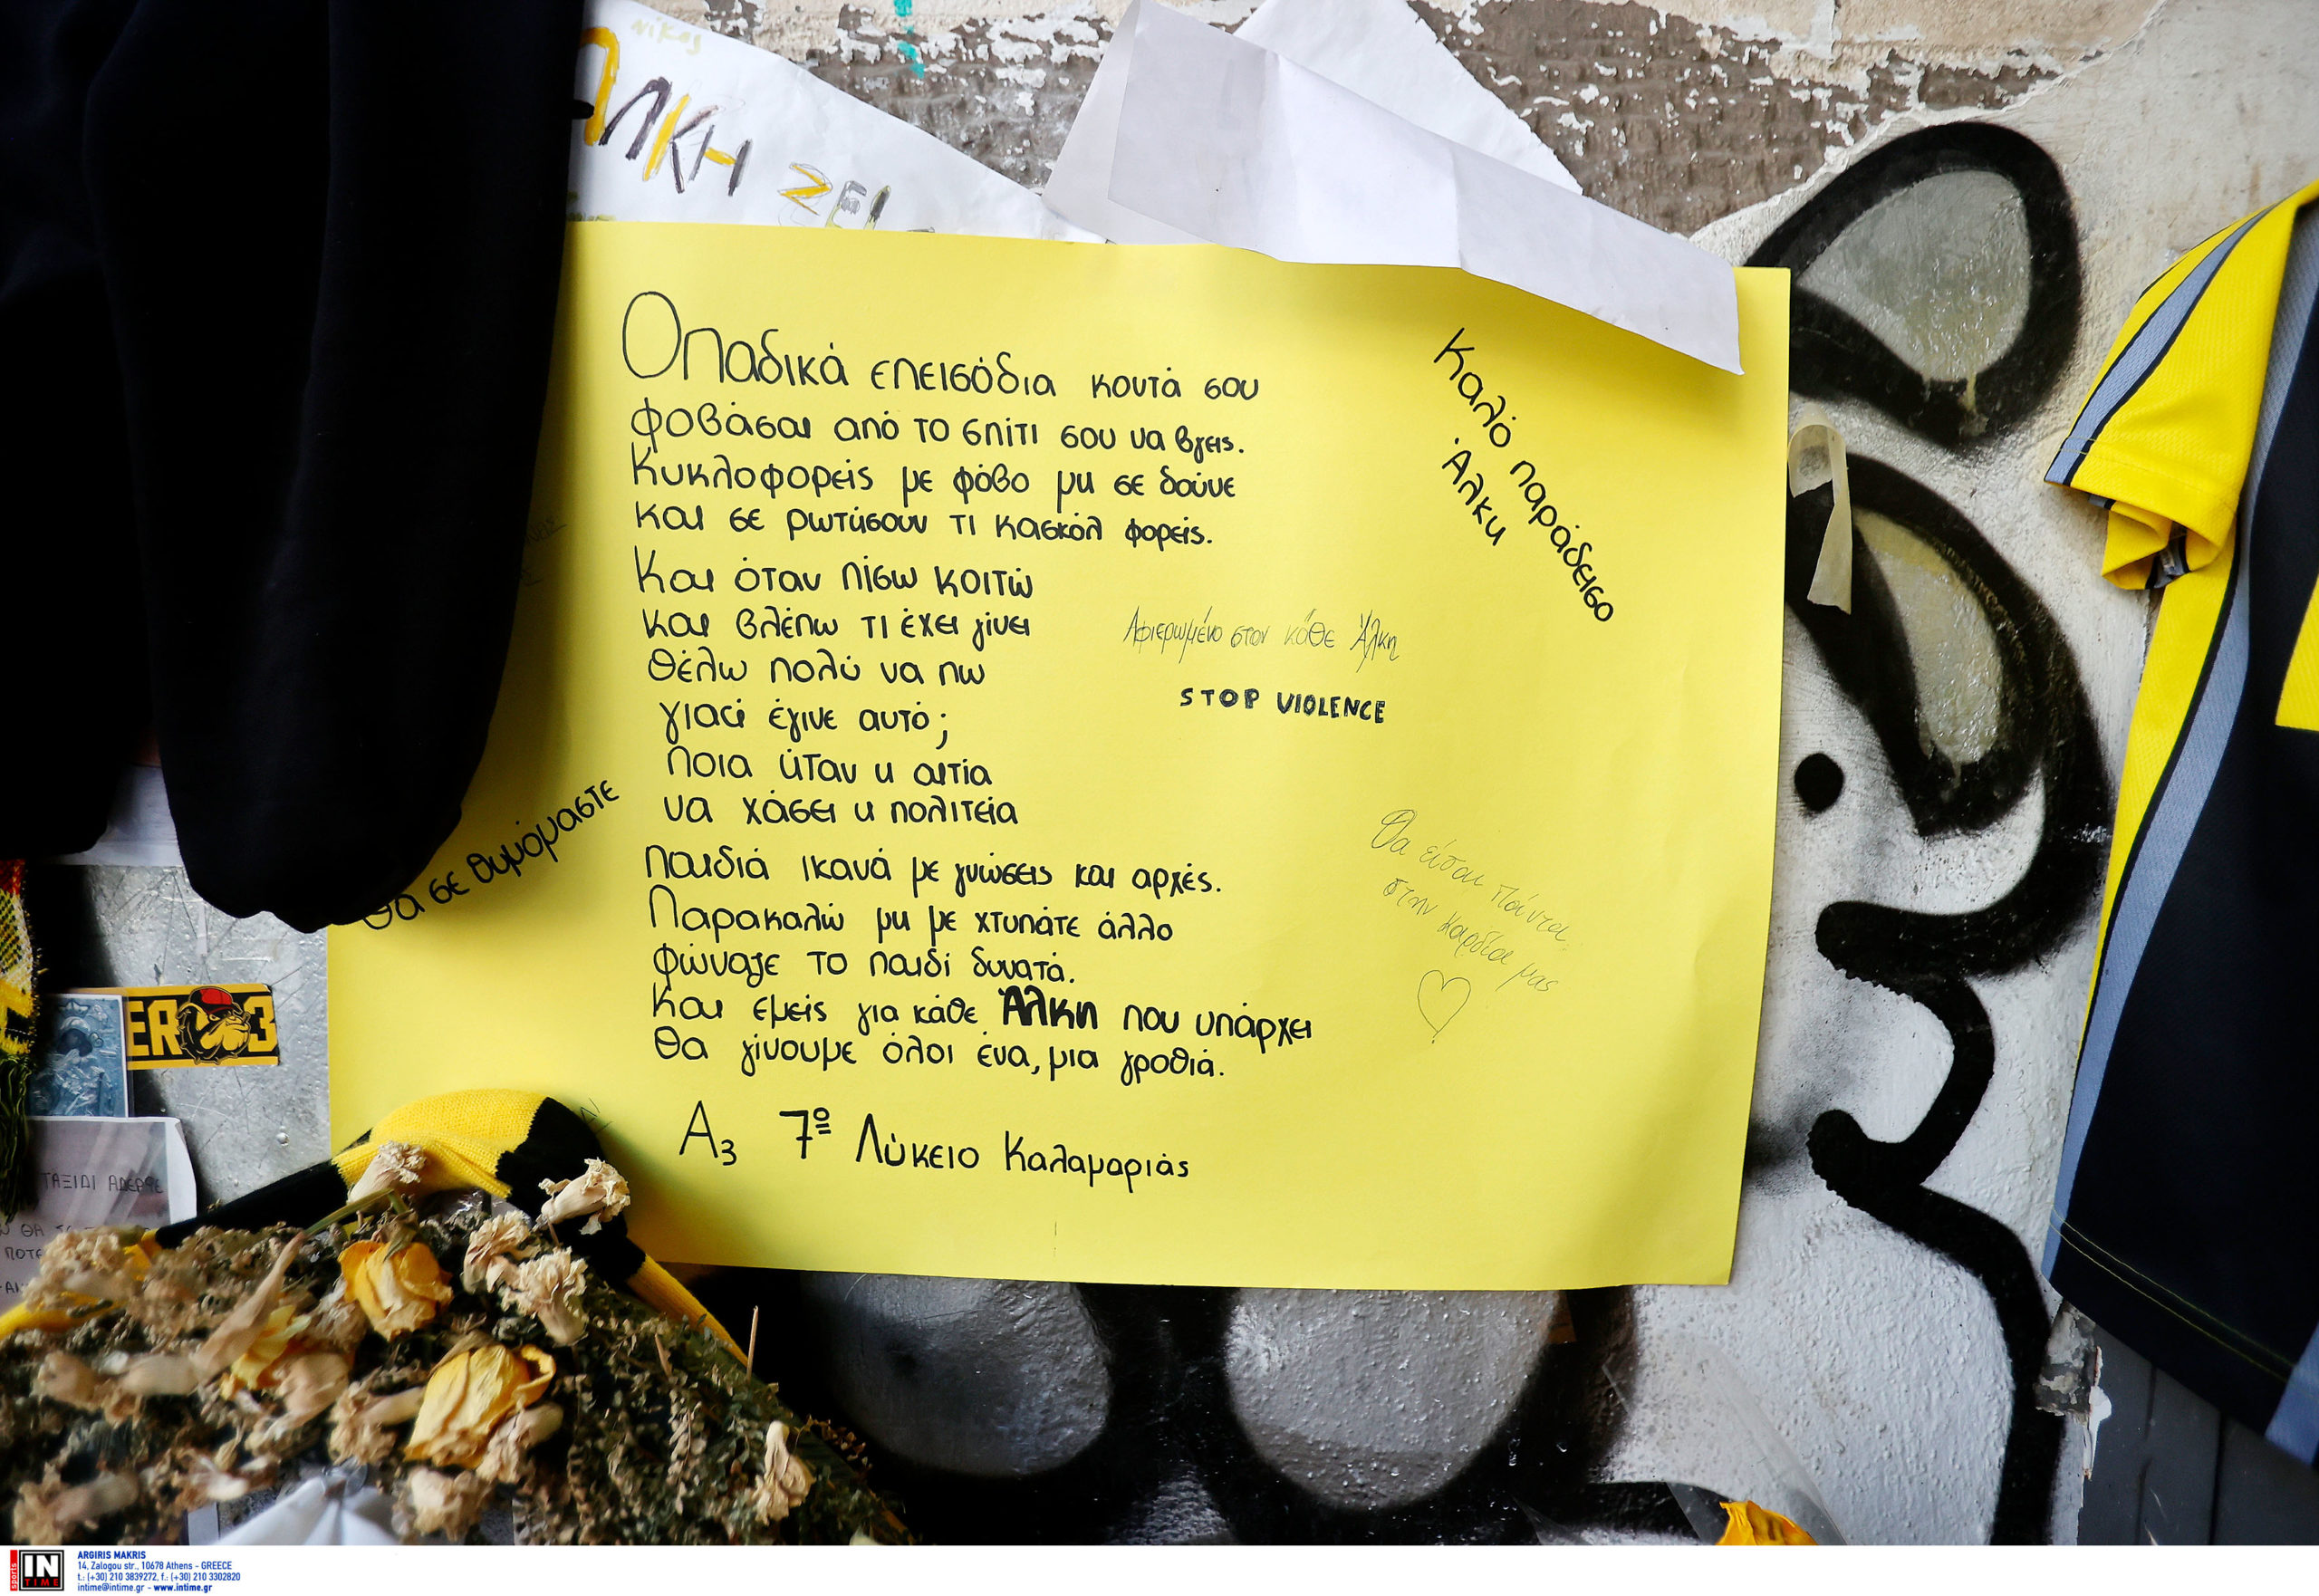 νίκος
ΑΛΚΗ ΖΕΙ
Οπαδικά επεισόδια κοντά σου
φοβάσαι από το σπίτι σου να βγεις.
Κυκλοφορείς με φόβο μη σε δούνε
και σε ρωτήσουν τι κασκόλ φορείς.
Και όταν πίσω κοιτώ
και βλέπω τι έχει γίνει
θέλω πολύ να πω
γιατί έγινε αυτό;
Ποια ήταν η αιτία
να χάσει η πολιτεία
παιδιά ικανά με γνώσεις και αρχές.
Παρακαλώ μη με χτυπάτε άλλο
φώναζε το παιδί δυνατά.
Και εμείς για κάθε Άλκη που υπάρχει
θα γίνουμε όλοι ένα, μια γροθιά.
Α3 7º Λύκειο Καλαμαριάς
Καλό παράδεισο
Άλκη
Αφιερωμένο στον κάθε Άλκη
STOP VIOLENCE
Θα είσαι πάντα
στην καρδιά μας
Θα σε θυμόμαστε
ER 3
ΤΑΞΙΔΙ ΑΔΕΡΦΕ
ΘΑ
ΠΟΤΕ
sports IN TIME
ARGIRIS MAKRIS
14, Zalogou str., 10678 Athens - GREECE
t.: (+30) 210 3839272, f.: (+30) 210 3302820
intime@intime.gr - www.intime.gr